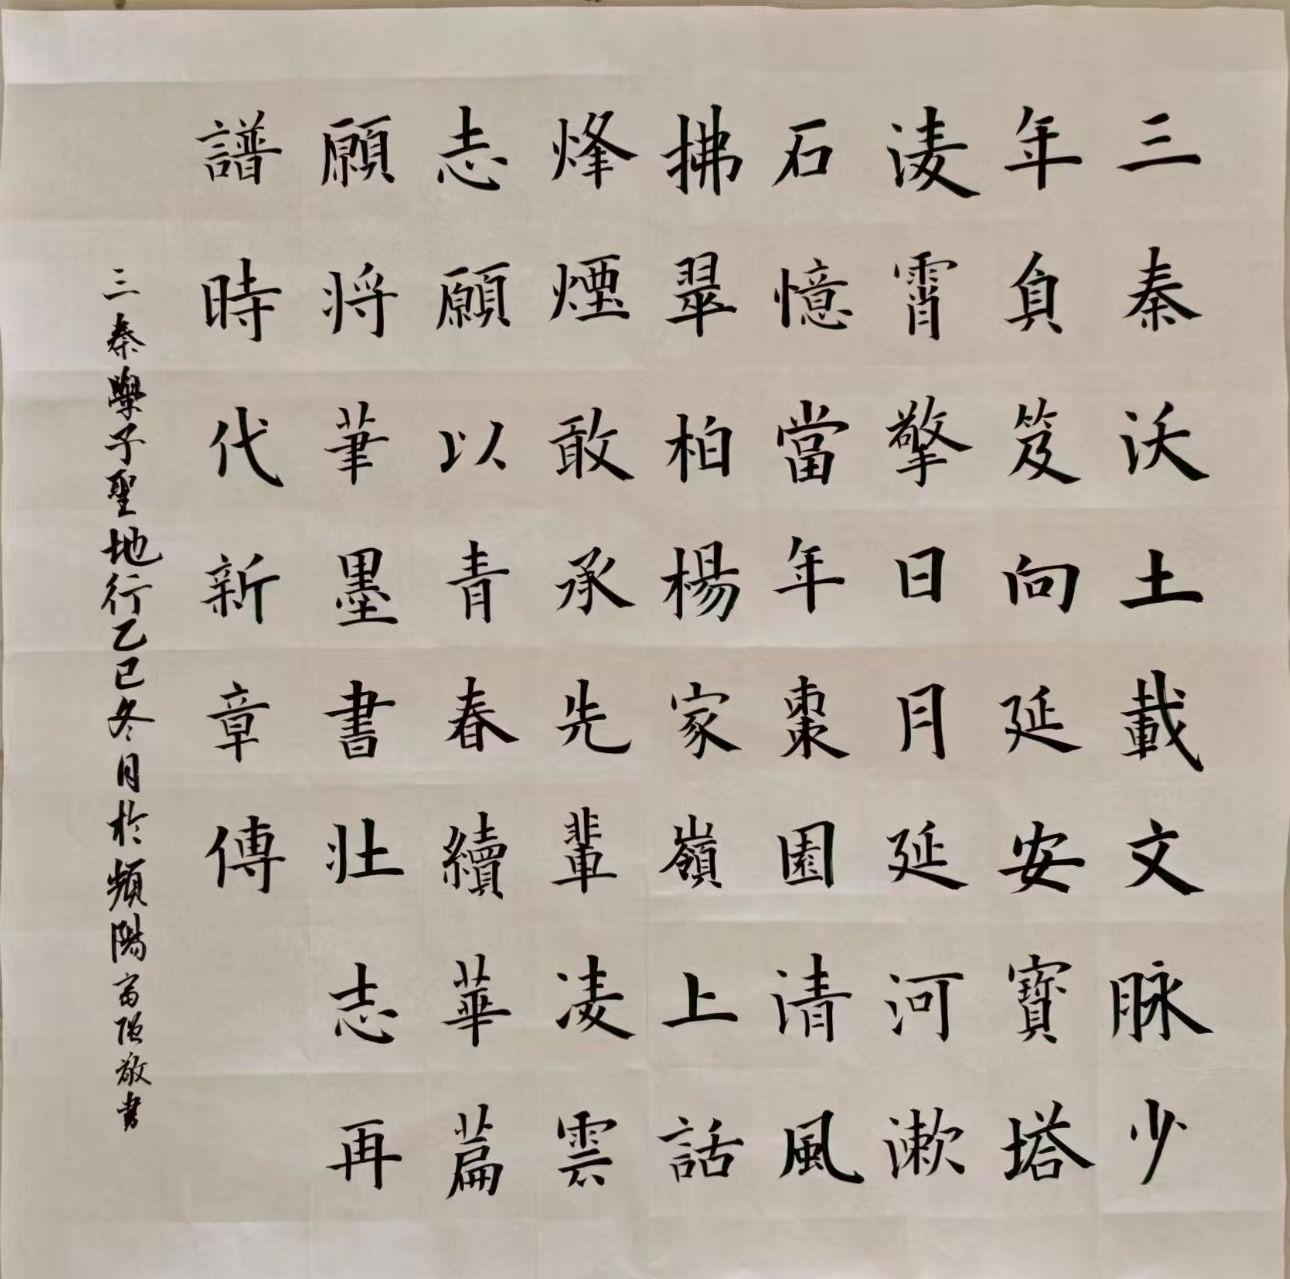 三秦沃土載文脉少
年負笈向延安寶塔
凌霄擎日月延河漱
石憶當年棗園清風
拂翠柏楊家嶺上話
烽煙敢承先輩凌雲
志願以青春續華篇
願将筆墨書壮志再
譜時代新章傳
三秦學子聖地行乙巳冬月於頻陽富强敬書